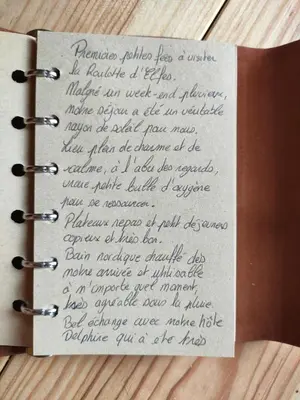 Premières petites fées à visiter
la Roulotte d'Elfes.
Malgré un week-end pluvieux,
notre séjour a été un véritable
rayon de soleil pour nous.
Lieu plein de charme et de
calme, à l'abri des regards,
vraie petite bulle d'oxygène
pour se ressourcer.
Plateaux repas et petit déjeuners
copieux et très bon.
Bain nordique chauffé dès
notre arrivée et utilisable
à n'importe quel moment,
très agréable sous la pluie.
Bel échange avec notre hôte
Delphine qui à été très